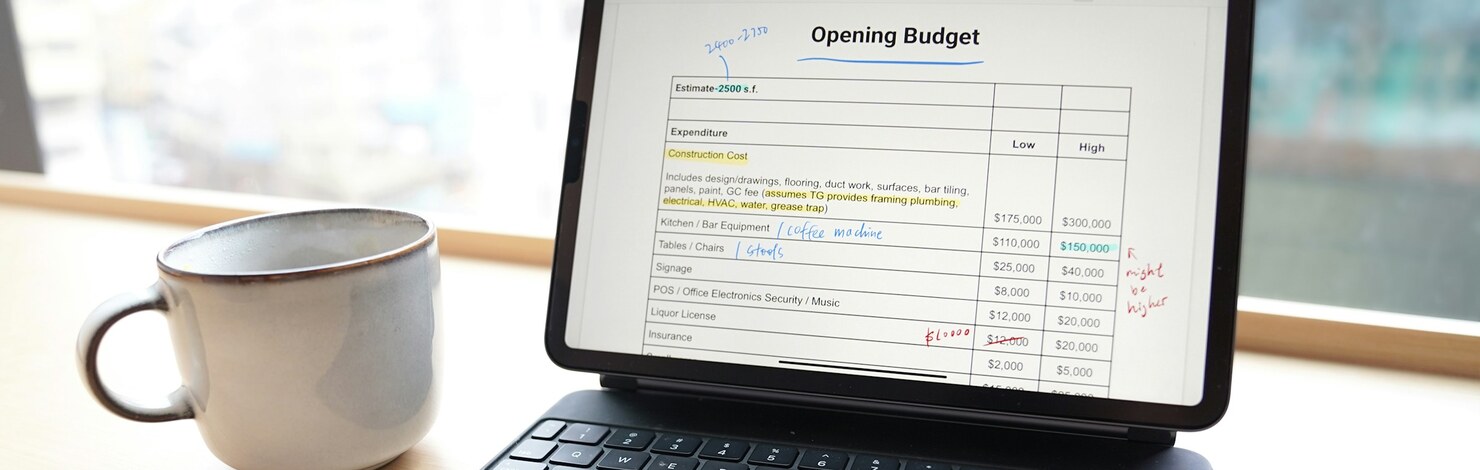 2400-2750
Opening Budget
Estimate-2500 s.f.
Expenditure Low High
Construction Cost
Includes design/drawings, flooring, duct work, surfaces, bar tiling,
panels, paint, GC fee (assumes TG provides framing plumbing,
electrical, HVAC, water, grease trap) $175,000 $300,000
Kitchen / Bar Equipment / coffee machine $110,000 $150,000
Tables / Chairs / stools $25,000 $40,000
might
be
higher
Signage $8,000 $10,000
POS / Office Electronics Security / Music $12,000 $20,000
Liquor License $10000 $12,000 $20,000
Insurance $2,000 $5,000